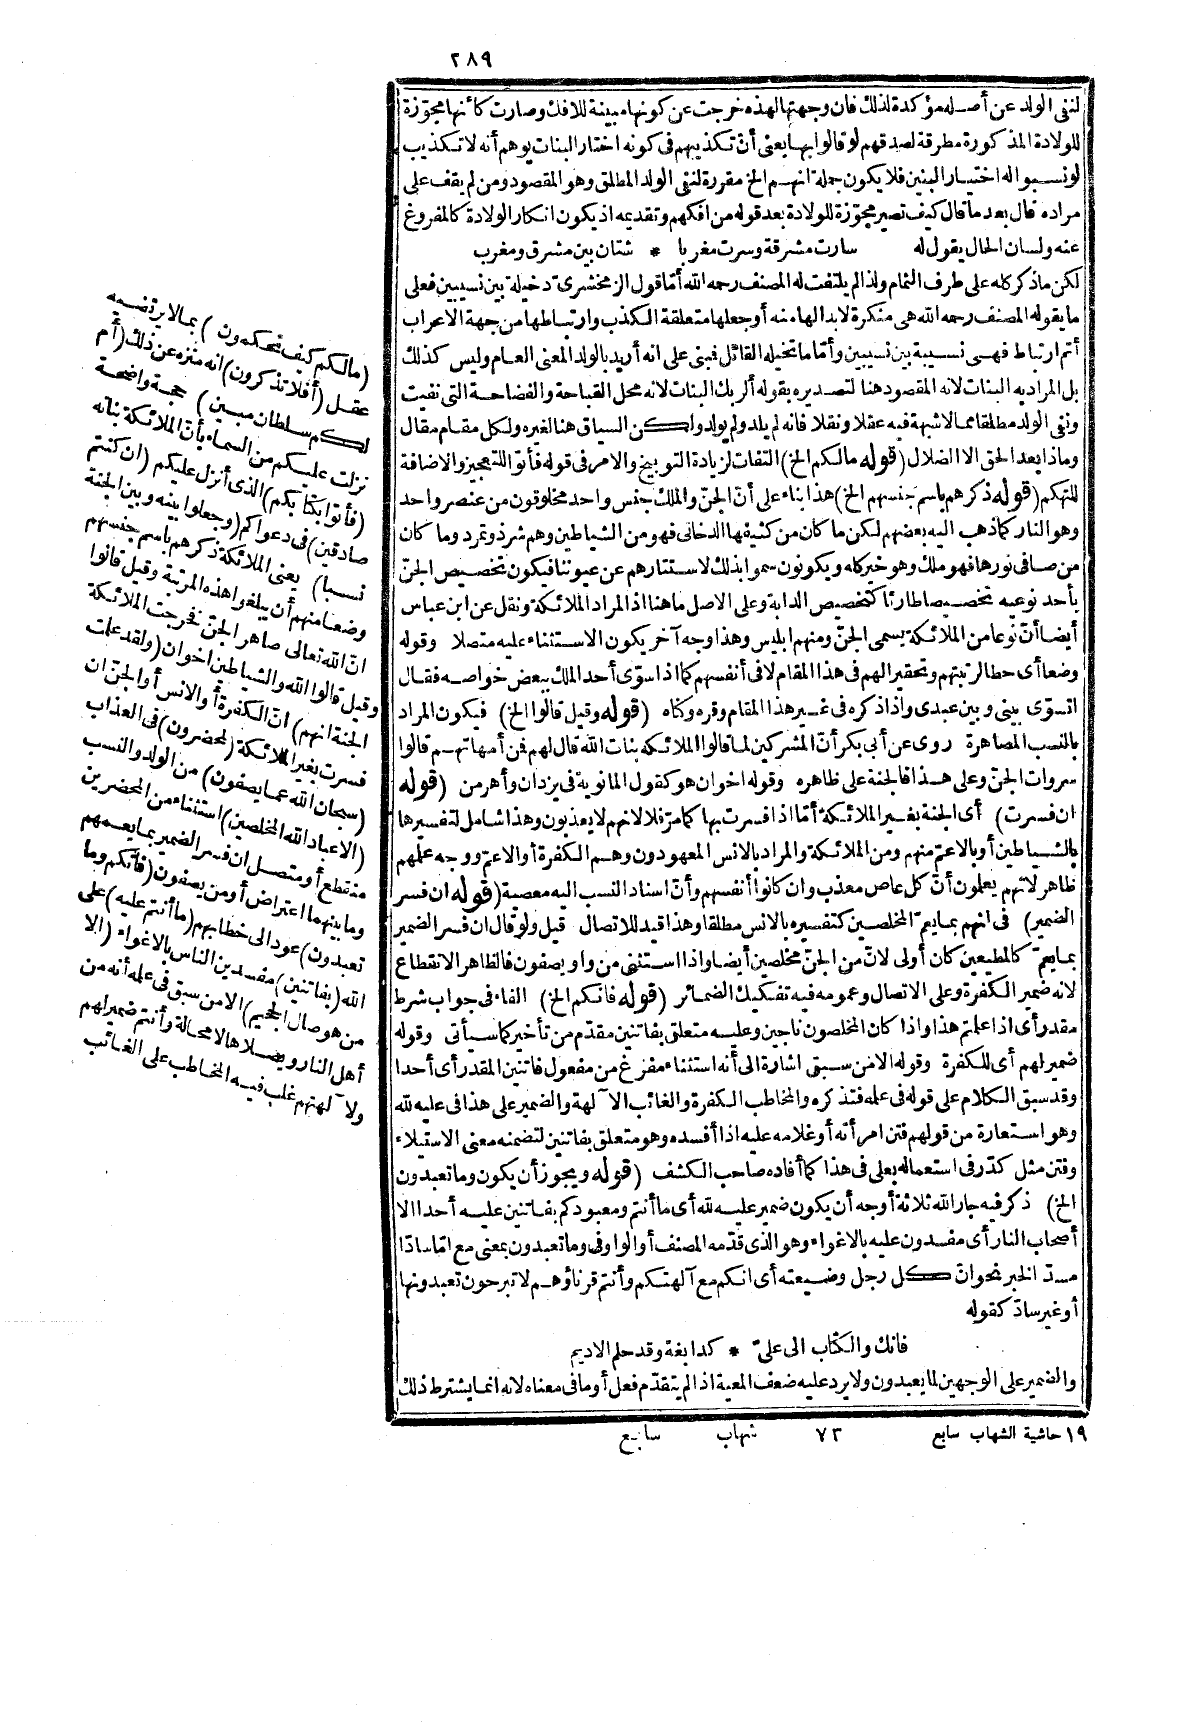 ٢٨٩
لنفى الولد عن أصله مؤكدة لذلك فان وجهتها لهذه خرجت عن كونها مبينة للافك وصارت كأنها مجوّزة
للولادة المذكورة مطرقة لصدقهم لو قالوا بها يعنى أنّ تكذيبهم فى كونه اختار البنات يوهم أنه لا تكذيب
لو نسبوا له اختيار البنين فلا يكون جملة انهم الخ مقررة لنفى الولد المطلق وهو المقصود ومن لم يقف على
مراده قال بعد ما قال كيف تصير مجوّزة للولادة بعد قوله من افكهم وتقديمه اذ يكون انكار الولادة كالمفروغ
عنه ولسان الحال يقول له سارت مشرقة وسرت مغربا * شتان بين مشرق ومغرب
لكن ما ذكر كله على طرف الثمام ولذا لم يلتفت له المصنف رحمه الله أمّا قول الزمخشرىّ دخيلة بين نسيبين فعلى
ما يقوله المصنف رحمه الله هى متكررة لابدالها منه أو جعلها متعلقة الكذب وارتباطها من جهة الاعراب
أتم ارتباط فهى نسيبة بين نسيبين وأمّا ما تخيله القائل فبنى على انه أريد بالولد المعنى العام وليس كذلك
بل المراد به البنات لانه المقصود هنا لتصديره بقوله ألربك البنات لانه محل القباحة والفضاحة التى نفيت
ونفى الولد مطلقا مما لا شبهة فيه عقلا ونقلا فانه لم يلد ولم يولد ولكن السياق هنا لغيره ولكل مقام مقال
وماذا بعد الحق الا الضلال (قوله مالكم الخ) التفات لزيادة التوبيخ والامر فى قوله فأتوا للتعجيز والاضافة
للتهكم (قوله ذكرهم باسم جنسهم الخ) هذا بناء على أنّ الجنّ والملك جنس واحد مخلوقون من عنصر واحد
وهو النار كما ذهب اليه بعضهم لكن ما كان من كثيفها الدخانى فهو من الشياطين وهم شر ذو تمرد وما كان
من صافى نورها فهو ملك وهو خير كله ويكونون سموا بذلك لاستتارهم عن عيوننا فيكون تخصيص الجنّ
بأحد نوعيه تخصيصا طارئا كتخصيص الدابة وعلى الاصل ما هنا اذ المراد الملائكة ونقل عن ابن عباس
أيضا أنّ نوعا من الملائكة يسمى الجنّ ومنهم ابليس وهذا وجه آخر يكون الاستثناء عليه متصلا وقوله
وضعا أى حطا لرتبتهم وتحقيرا لهم فى هذا المقام لا فى أنفسهم كما اذا سوّى أحد الملك ببعض خواصه فقال
اتسوّى بينى وبين عبدى واذا ذكره فى غير هذا المقام وقره وكناه (قوله وقيل قالوا الخ) فيكون المراد
بالنسب المصاهرة روى عن أبى بكر أنّ المشركين لما قالوا الملائكة بنات الله قال لهم فمن أمهاتهم قالوا
سروات الجنّ وعلى هذا فالجنة على ظاهره وقوله اخوان هو كقول المانوية فى يزدان وأهرمن (قوله
ان فسرت) أى الجنة بغير الملائكة أمّا اذا فسرت بها كما مرّ فلا لانهم لا يعذبون وهذا شامل لتفسيرها
بالشياطين أو بالاعمّ منهم ومن الملائكة والمراد بالانس المعهودون وهم الكفرة أو الاعمّ ووجه علمهم
ظاهر لانهم يعلمون أنّ كل عاص معذب وان كانوا أنفسهم وأنّ اسناد النسب اليه معصية (قوله ان فسر
الضمير) فى انهم بما يعمّ المخلصين كتفسيره بالانس مطلقا وهذا قيد للاتصال قيل ولو قال ان فسر الضمير
بما يعمّ كالمطيعين كان أولى لانّ من الجنّ مخلصين أيضا واذا استثنى من واو يصفون فالظاهر الانقطاع
لانه ضمير الكفرة وعلى الاتصال وعمومه فيه تفكيك الضمائر (قوله فانكم الخ) الفاء فى جواب شرط
مقدر أى اذا علمتم هذا واذا كان المخلصون ناجين وعليه متعلق بفاتنين مقدّم من تأخير كما سيأتى وقوله
ضمير لهم أى للكفرة وقوله الا من سبق اشارة الى أنه استثناء مفرغ من مفعول فاتنين المقدر أى أحدا
وقد سبق الكلام على قوله فى علمه فتذكره والمخاطب الكفرة والغائب الآلهة والضمير على هذا فى عليه لله
وهو استعارة من قولهم فتن امرأته أو غلامه عليه اذا أفسده وهو متعلق بفاتنين لتضمنه معنى الاستيلاء
وفتن مثل كدّر فى استعماله بعلى فى هذا كما أفاده صاحب الكشف (قوله ويجوز أن يكون وما تعبدون
الخ) ذكر فيه جار الله ثلاثة أوجه أن يكون ضمير عليه لله أى ما أنتم ومعبودكم بفاتنين عليه أحدا الا
أصحاب النار أى مفسدون عليه بالاغواء وهو الذى قدّمه المصنف أو الواو فى وما تعبدون بمعنى مع امّا سادّا
مسدّ الخبر نحو انّ كل رجل وضيعته أى انكم مع آلهتكم وأنتم قرناؤهم لا تبرحون تعبدونها
أو غير سادّ كقوله
فانك والكتاب الى علىّ * كدابغة وقد حلم الاديم
والضمير على الوجهين لما يعبدون ولا يرد عليه ضعف المعية اذا لم يتقدّم فعل أو ما فى معناه لانه انما يشترط ذلك
١٩ حاشية الشهاب سابع ٧٣ شهاب سابع
(مالكم كيف تحكمون) بما لا يرتضيه
عقل (أفلا تذكرون) انه منزه عن ذلك (أم
لكم سلطان مبين) حجة واضحة
نزلت عليكم من السماء بأنّ الملائكة بناته
(فأتوا بكتابكم) الذى أنزل عليكم (ان كنتم
صادقين) فى دعواكم (وجعلوا بينه وبين الجنة
نسبا) يعنى الملائكة ذكرهم باسم جنسهم
وضعا منهم أن يبلغوا هذه المرتبة وقيل قالوا
انّ الله تعالى صاهر الجنّ فخرجت الملائكة
وقيل قالوا الله والشياطين اخوان (ولقد علمت
الجنة انهم) انّ الكفرة أو الانس أو الجنّ ان
فسرت بغير الملائكة (لمحضرون) فى العذاب
(سبحان الله عما يصفون) من الولد والنسب
(الا عباد الله المخلصين) استثناء من المحضرين
منقطع أو متصل ان فسر الضمير بما يعمهم
وما بينهما اعتراض أو من يصفون (فانكم وما
تعبدون) عود الى خطابهم (ما أنتم عليه) على
الله (بفاتنين) مفسدين الناس بالاغواء (الا
من هو صال الجحيم) الا من سبق فى علمه أنه من
أهل النار ويصلاها لا محالة وأنتم ضمير لهم
ولآلهتهم غلب فيه المخاطب على الغائب